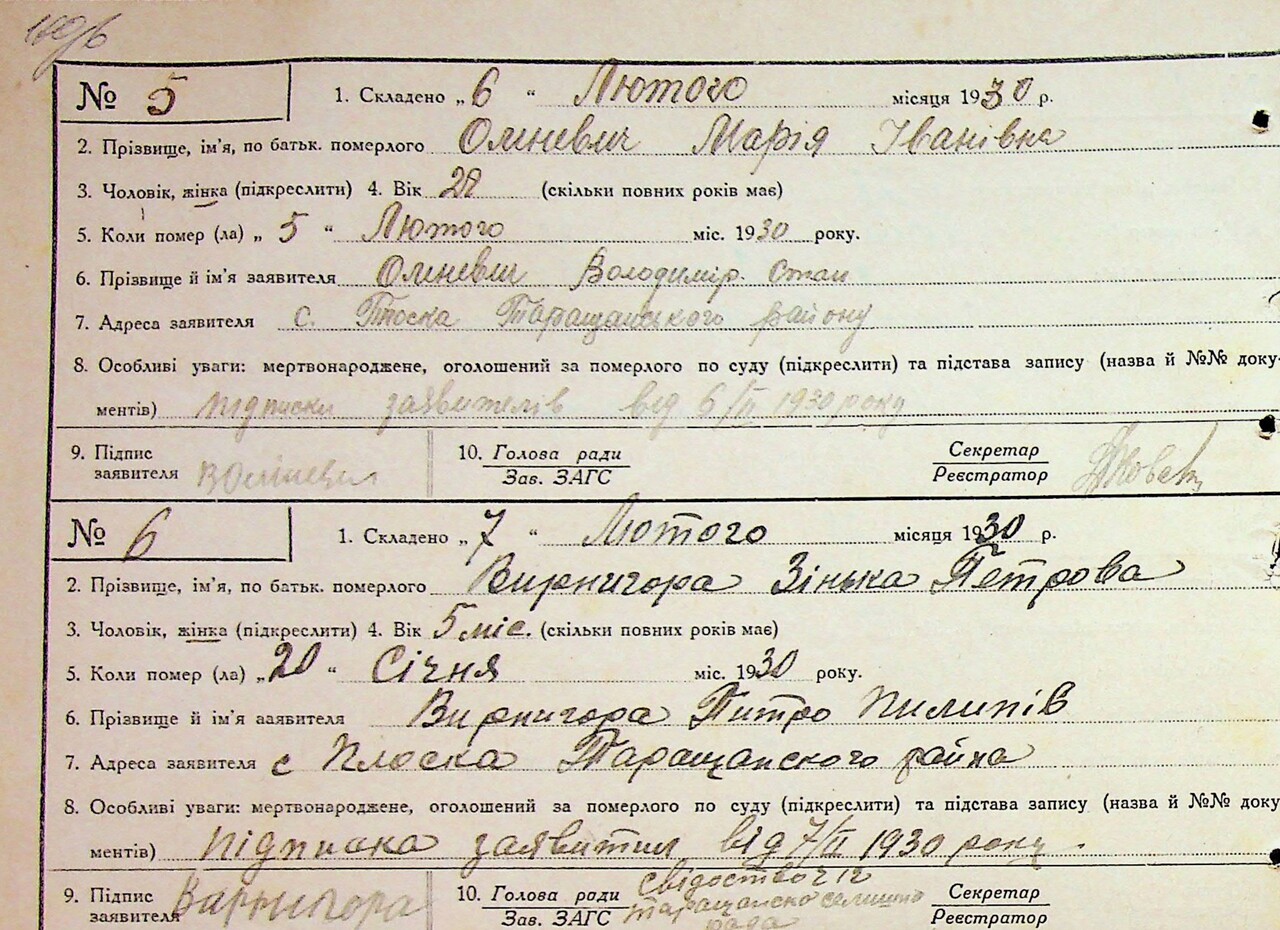 № 5 1. Складено „ 6 “ Лютого місяця 1930 р.
2. Прізвище, ім'я, по батьк. померлого Олиневич Марія Іванівна
3. Чоловік, жінка (підкреслити) 4. Вік (скільки повних років має)
5. Коли помер (ла) „ 5 “ Лютого міс. 1930 року.
6. Прізвище й ім'я заявителя Олиневич Володимір. Стап
7. Адреса заявителя с. Плоска Таращанського району
8. Особливі уваги: мертвонароджене, оголошений за померлого по суду (підкреслити) та підстава запису (назва й №№ доку-
ментів) підписка заявителів від 6/II 1930 року
9. Підпис 10. Голова ради Секретар
заявителя Зав. ЗАГС Реєстратор
№ 6 1. Складено „ 7 “ Лютого місяця 1930 р.
2. Прізвище, ім'я, по батьк. померлого Вирнигора Зінька Петрова
3. Чоловік, жінка (підкреслити) 4. Вік 5 міс. (скільки повних років має)
5. Коли помер (ла) „ 20 “ Січня міс. 1930 року.
6. Прізвище й ім'я заявителя Вирнигора Питро Пилипів
7. Адреса заявителя с Плоска Таращанского райна
8. Особливі уваги: мертвонароджене, оголошений за померлого по суду (підкреслити) та підстава запису (назва й №№ доку
ментів) підписка заявитил від 7/II 1930 року.
9. Підпис Варнигора 10. Голова ради Секретар
заявителя Зав. ЗАГС Реєстратор